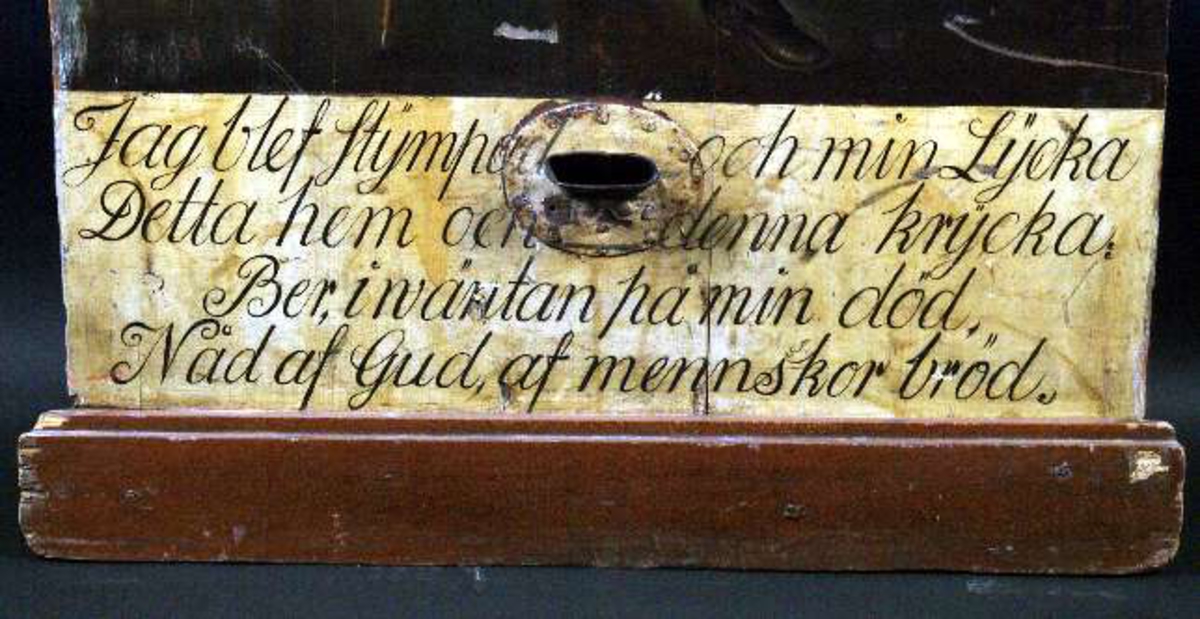 Jag blef Stÿmpad och min Lÿcka
Detta hem och denna krÿcka:
Ber, i wäntan på min död,
Nåd af Gud, af mennskor bröd.